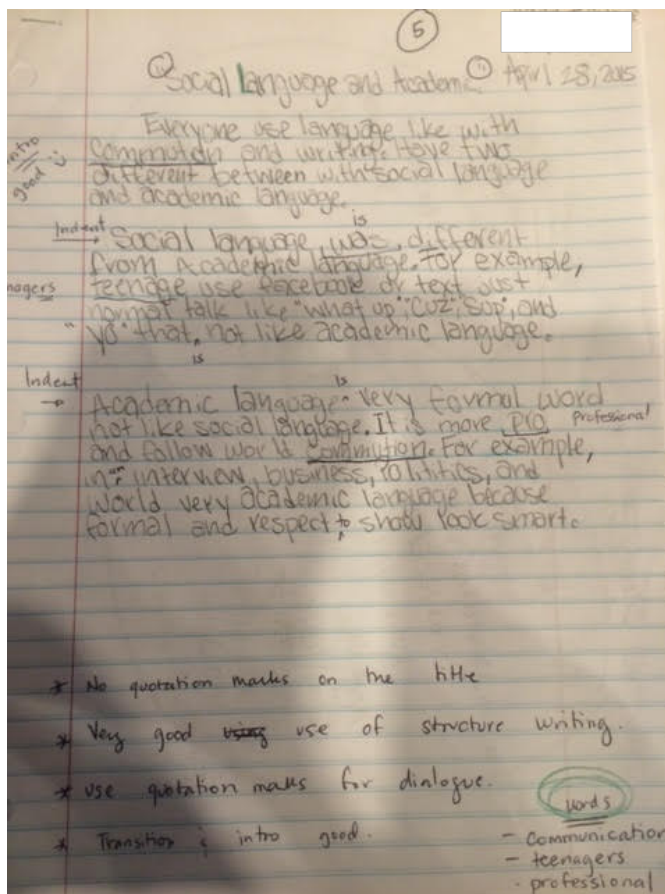 5
"Social Language and Academic" April 28, 2015
Everyone use language like with
intro
good
commution and writing. Have two
different between with social language
and academic language.
is
Indent Social language was different
from Academic language. For example,
nagers teenage use facebook or text Just
normal talk like "what up", "Cuz", "Sup", and
"yo" that not like academic language.
is
Indent is
Academic language very formal word
not like social language. It is more pro Professional
and follow world commution. For example,
in interview, business, Polititics, and
world very academic language because
formal and respect to show look smart.
* No quotation marks on the title
* Very good using use of structure writing.
* Use quotation marks for dialogue.
* Transition & intro good.
words
- communication
- teenagers
- professional